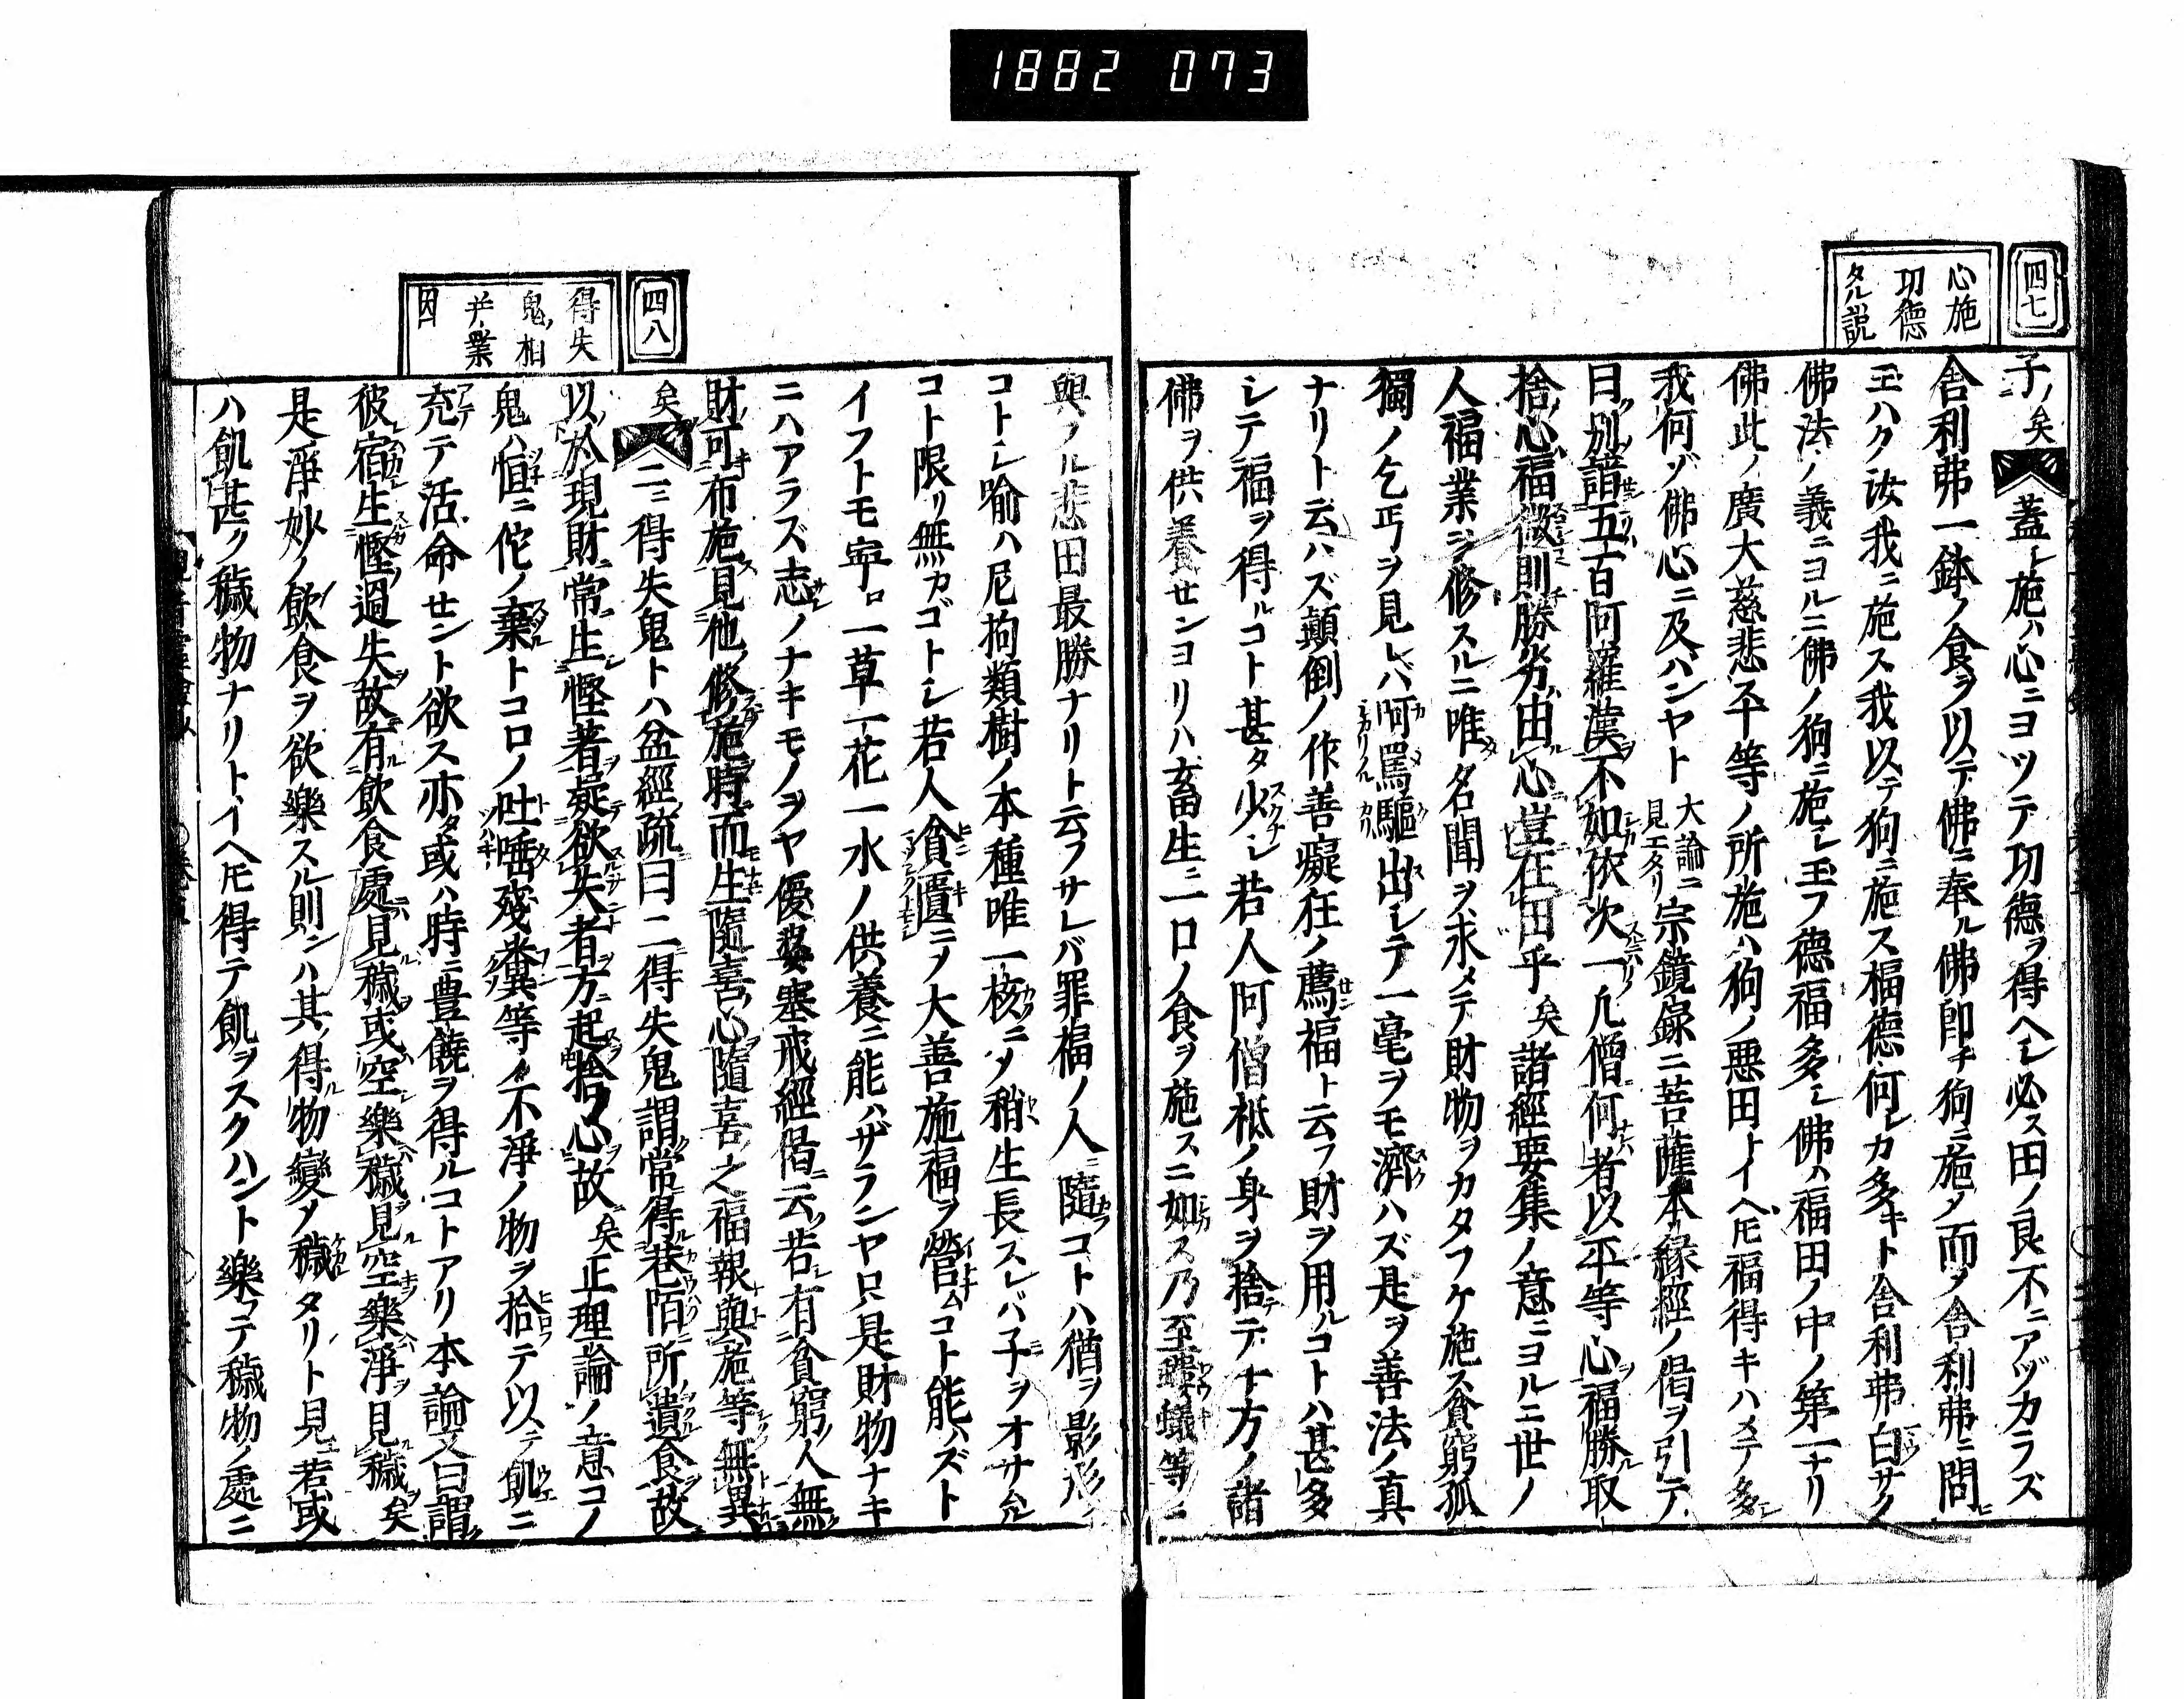 1882 073
四七
心施
功徳
タル説
子ノ矣 蓋ト施ハ心ニヨツテ功徳ヲ得ヘシ必ス田ノ良不ニアヅカラズ
舎利弗一鉢ノ食ヲ以テ佛ニ奉ル佛即チ狗ニ施メ而メ舎利弗ニ問ヒ
玉ハク汝我ニ施ス我以テ狗ニ施ス福徳何レカ多キト舎利弗白サク
佛法ノ義ニヨルニ佛ノ狗ニ施シ玉フ徳福多シ佛ハ福田ノ中ノ第一ナリ
佛此ノ廣大慈悲平等ノ所施ハ狗ノ悪田トイヘ𪜈福得キハメテ多シ
我何ゾ佛心ニ及ハンヤト 大論ニ見エタリ 宗鏡録ニ菩薩本縁經ノ偈ヲ引テ
曰別請五百阿羅漢不如依次一凡僧何者以平等心福勝取
捨心福微則勝劣由心豈在田乎 矣 諸經要集ノ意ニヨルニ世ノ
人福業ヲ修スルニ唯名聞ヲ求メテ財物ヲカタフケ施ス貧窮孤
獨ノ乞丐ヲ見レバ阿罵驅出シテ一毫ヲモ濟ハズ是ヲ善法ノ真
ナリト云ハズ顛倒ノ作善癡狂ノ薦福ト云フ財ヲ用ルコトハ甚多
シテ福ヲ得ルコト甚タ少シ若人阿僧柢ノ身ヲ捨テ十方ノ諸
佛ヲ供養センヨリハ畜生ニ一口ノ食ヲ施スニ如ス乃至螻蟻等ニ
四八
得失
鬼ノ相
并ニ業
因
與ノル悲田最勝ナリト云フサレバ罪福ノ人ニ隨コトハ猶ヲ影形ノ
コトシ喻ハ尼拘類樹ノ本種唯一核ニメ稍生長スレバ子ヲオサムル
コト限リ無カゴトシ若人貧匱ニメ大善施福ヲ營ムコト能ハズト
イフトモ寧ロ一草一花一水ノ供養ニ能ハザランヤ只是財物ナキ
ニハアラズ志ノナキモノヲヤ優婆塞戒經偈云若有貧窮人無
財可布施見他修施時而生隨喜心隨喜之福報與施等無異
矣 二ニ得失鬼トハ盆經疏曰二得失鬼謂常得巷陌所遺食故
以於現財常生慳著疑欲失者方起捨心故 矣 正理論ノ意コノ
鬼ハ恒ニ佗ノ棄トコロノ吐唾殘糞等ノ不淨ノ物ヲ拾テ以テ飢ニ
充テ活命セント欲ス亦タ或ハ時ニ豊饒ヲ得ルコトアリ本論文曰謂
彼宿生慳過失故有飲食處見穢或空樂穢見空樂淨見穢 矣
是淨妙ノ飲食ヲ欲樂スル則ンハ其ノ得物變メ穢タリト見若或
ハ飢甚ク穢物ナリトイヘ𪜈得テ飢ヲスクハント樂テ穢物ノ處ニ